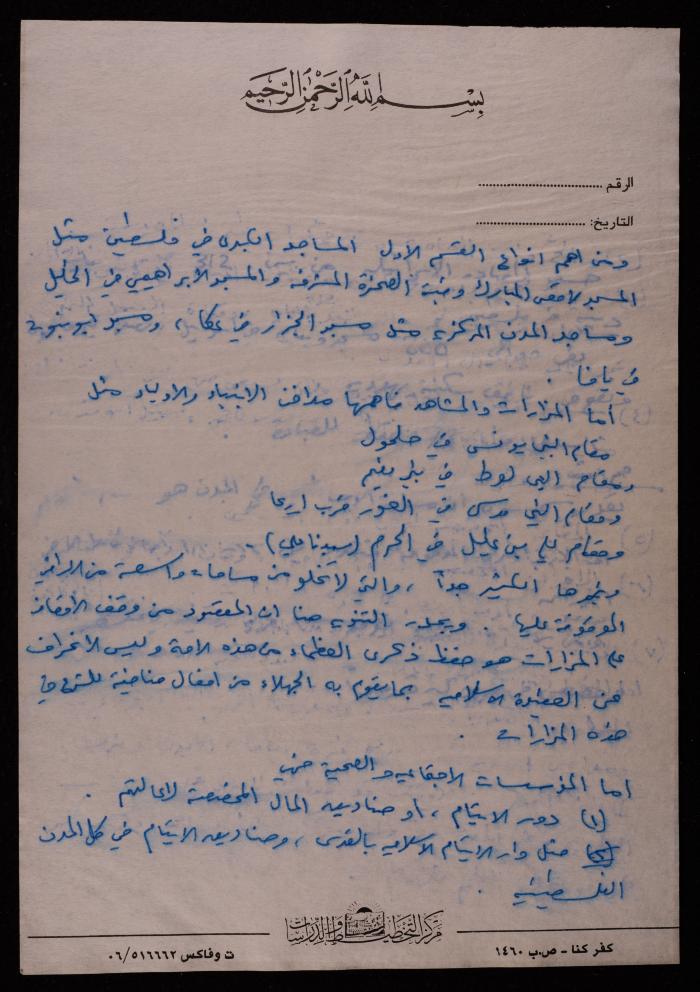 بسم الله الرحمن الرحيم
الرقم
التاريخ:
ومن اهم انواع القسم الاول المساجد الكبرى في فلسطين مثل
المسجد الاقصى المبارك وقبة الصخرة المشرفة والمسجد الابراهيمي في الخليل
ومساجد المدن المركزية مثل مسجد الجزار في عكا، ومسجد
في يافا .
أما المزارات والمشاهد فأهمها مدافن الانبياء والاولياء مثل
مقام النبي يونس في حلحول
ومقام النبي لوط في بني نعيم
ومقام النبي موسى في الغور قرب اريحا
ومقام علي بن عليل في الحرم (سيدنا علي) .
وغيرها الكثير جداً ، والتي لا تخلو من مساحات واسعة من الاراضي
الموقوفة عليها . ويجدر التنويه هنا ان المقصود من وقف الأوقاف
على المزارات هو حفظ ذكرى العظماء من هذه الامة وليس الانحراف
عن العقيدة الاسلامية بما يقوم به الجهلاء من افعال منافية للشرع في
هذه المزارات .
اما المؤسسات الاجتماعية والصحية فهي
(١) دور الايتام ، او صناديق المال المخصصة لاعالتهم .
مثل دار الايتام الاسلامية بالقدس ، وصناديق الايتام في كل المدن
الفلسطينية .
مركز التخطيط والدراسات
كفر كنا - ص.ب ١٤٦٠
ت وفاكس ٠٦/٥١٦٦٦٢